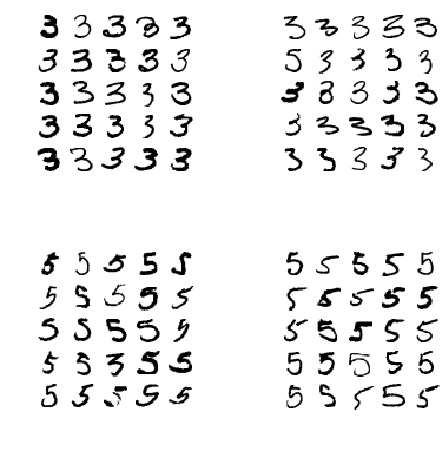 3 3 3 3 3 3 3 3 3 3
3 3 3 3 3 5 3 3 3 3
3 3 3 3 3 3 3 3 3 3
3 3 3 3 3 3 3 3 3 3
3 3 3 3 3 3 3 3 3 3
5 5 5 5 5 5 5 5 5 5
5 5 5 5 5 5 5 5 5 5
5 5 5 5 5 5 5 5 5 5
5 5 3 5 5 5 5 5 5 5
5 5 5 5 5 5 5 5 5 5